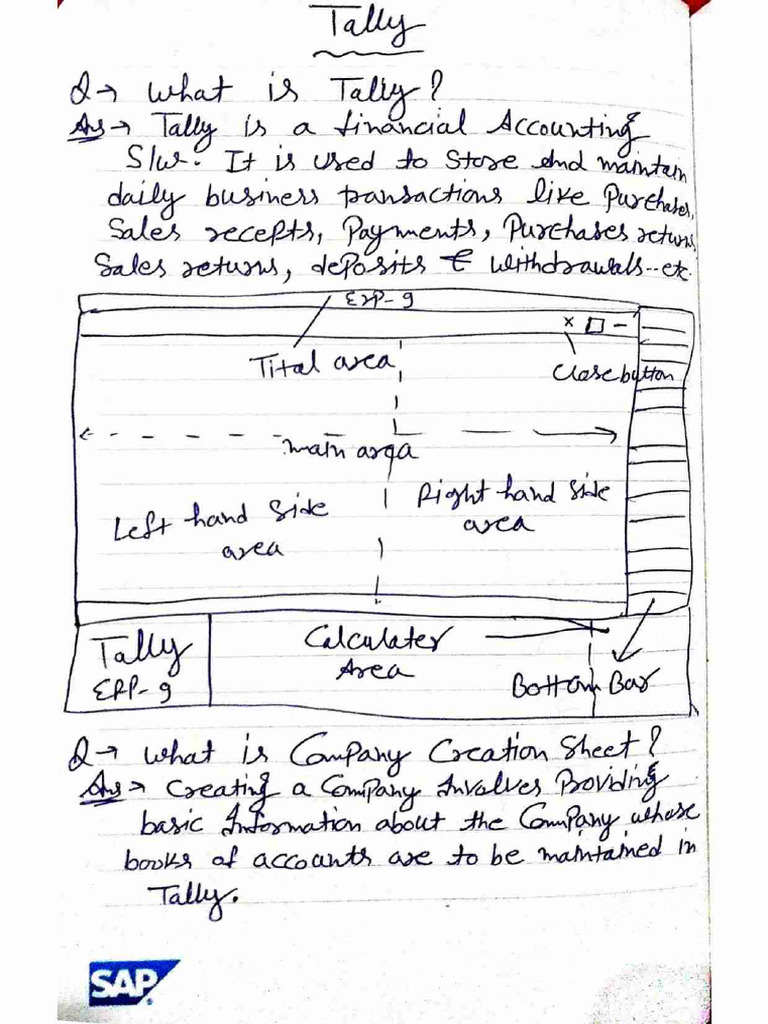 Tally
Q→ What is Tally?
Ans→ Tally is a financial Accounting
S/w. It is used to Store and maintain
daily business transactions like Purchases,
Sales recepts, Payments, Purchases return,
Sales returns, deposits & withdrawals..etc.
ERP-9
× □ -
Tital area
Close button
main area
Left hand side
area
Right hand side
area
Tally
ERP-9
Calculater
Area
Bottom Bar
Q→ What is Company Creation Sheet?
Ans→ Creating a Company Involves Providing
basic Information about the Company whose
books of accounts are to be maintained in
Tally.
SAP